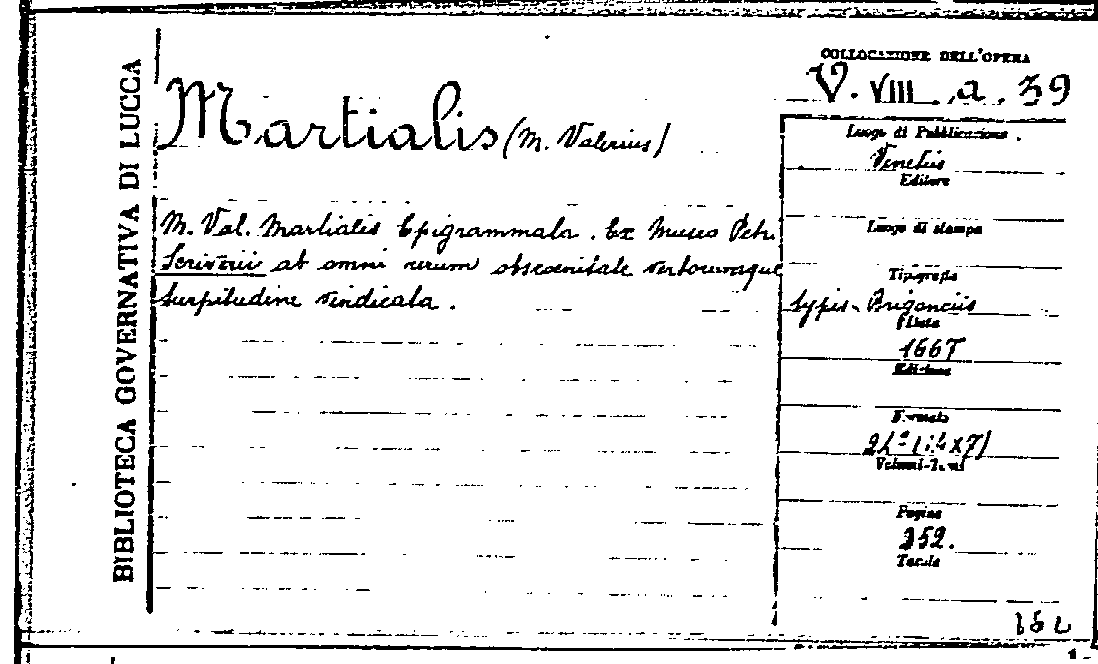 BIBLIOTECA GOVERNATIVA DI LUCCA
COLLOCAZIONE DELL'OPERA
V. VIII. a. 39
Martialis (M. Valerius)
Luogo di Pubblicazione.
Venetiis
Editore
M. Val. Martialis Epigrammata. Ex Museo Petri
Luogo di stampa
Scriverii ab omni rerum obscoenitate verborumque
Tipografia
turpitudine vindicata.
typis Brigonciis
Data
1667
Edizione
Formato
24°
Volumi-Tomi
Pagine
352.
Tavole